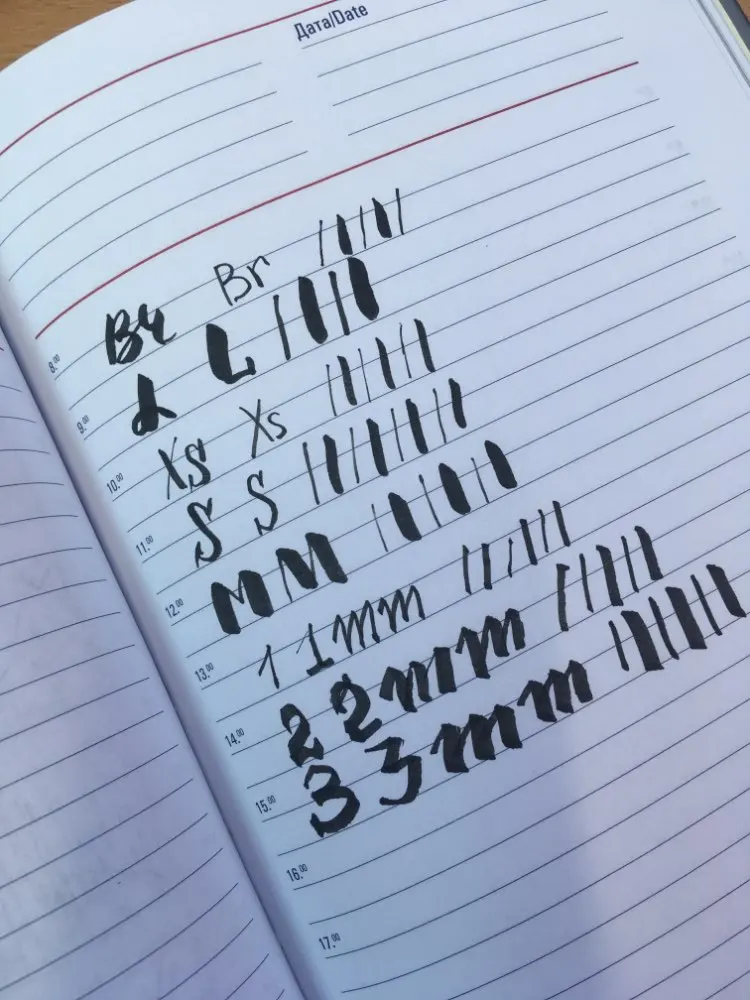 Дата/Date
Br Br
8.00
L L
9.00
XS Xs
10.00
S S
11.00
M M
12.00
1 1mm
13.00
2 2mm
14.00
3 3mm
15.00
16.00
17.00